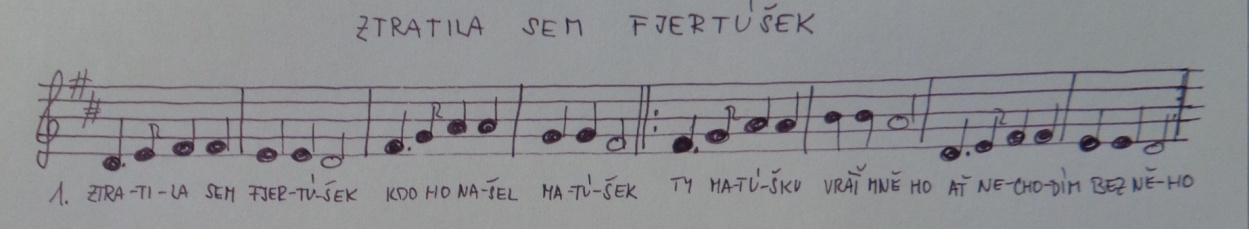 ZTRATILA SEM FJERTÚŠEK
1. ZTRA-TI-LA SEM FJER-TÚ-ŠEK KDO HO NA-ŠEL MA-TÚ-ŠEK TY MA-TÚ-ŠKU VRAŤ MNĚ HO AŤ NE-CHO-DÍM BEZ NĚ-HO